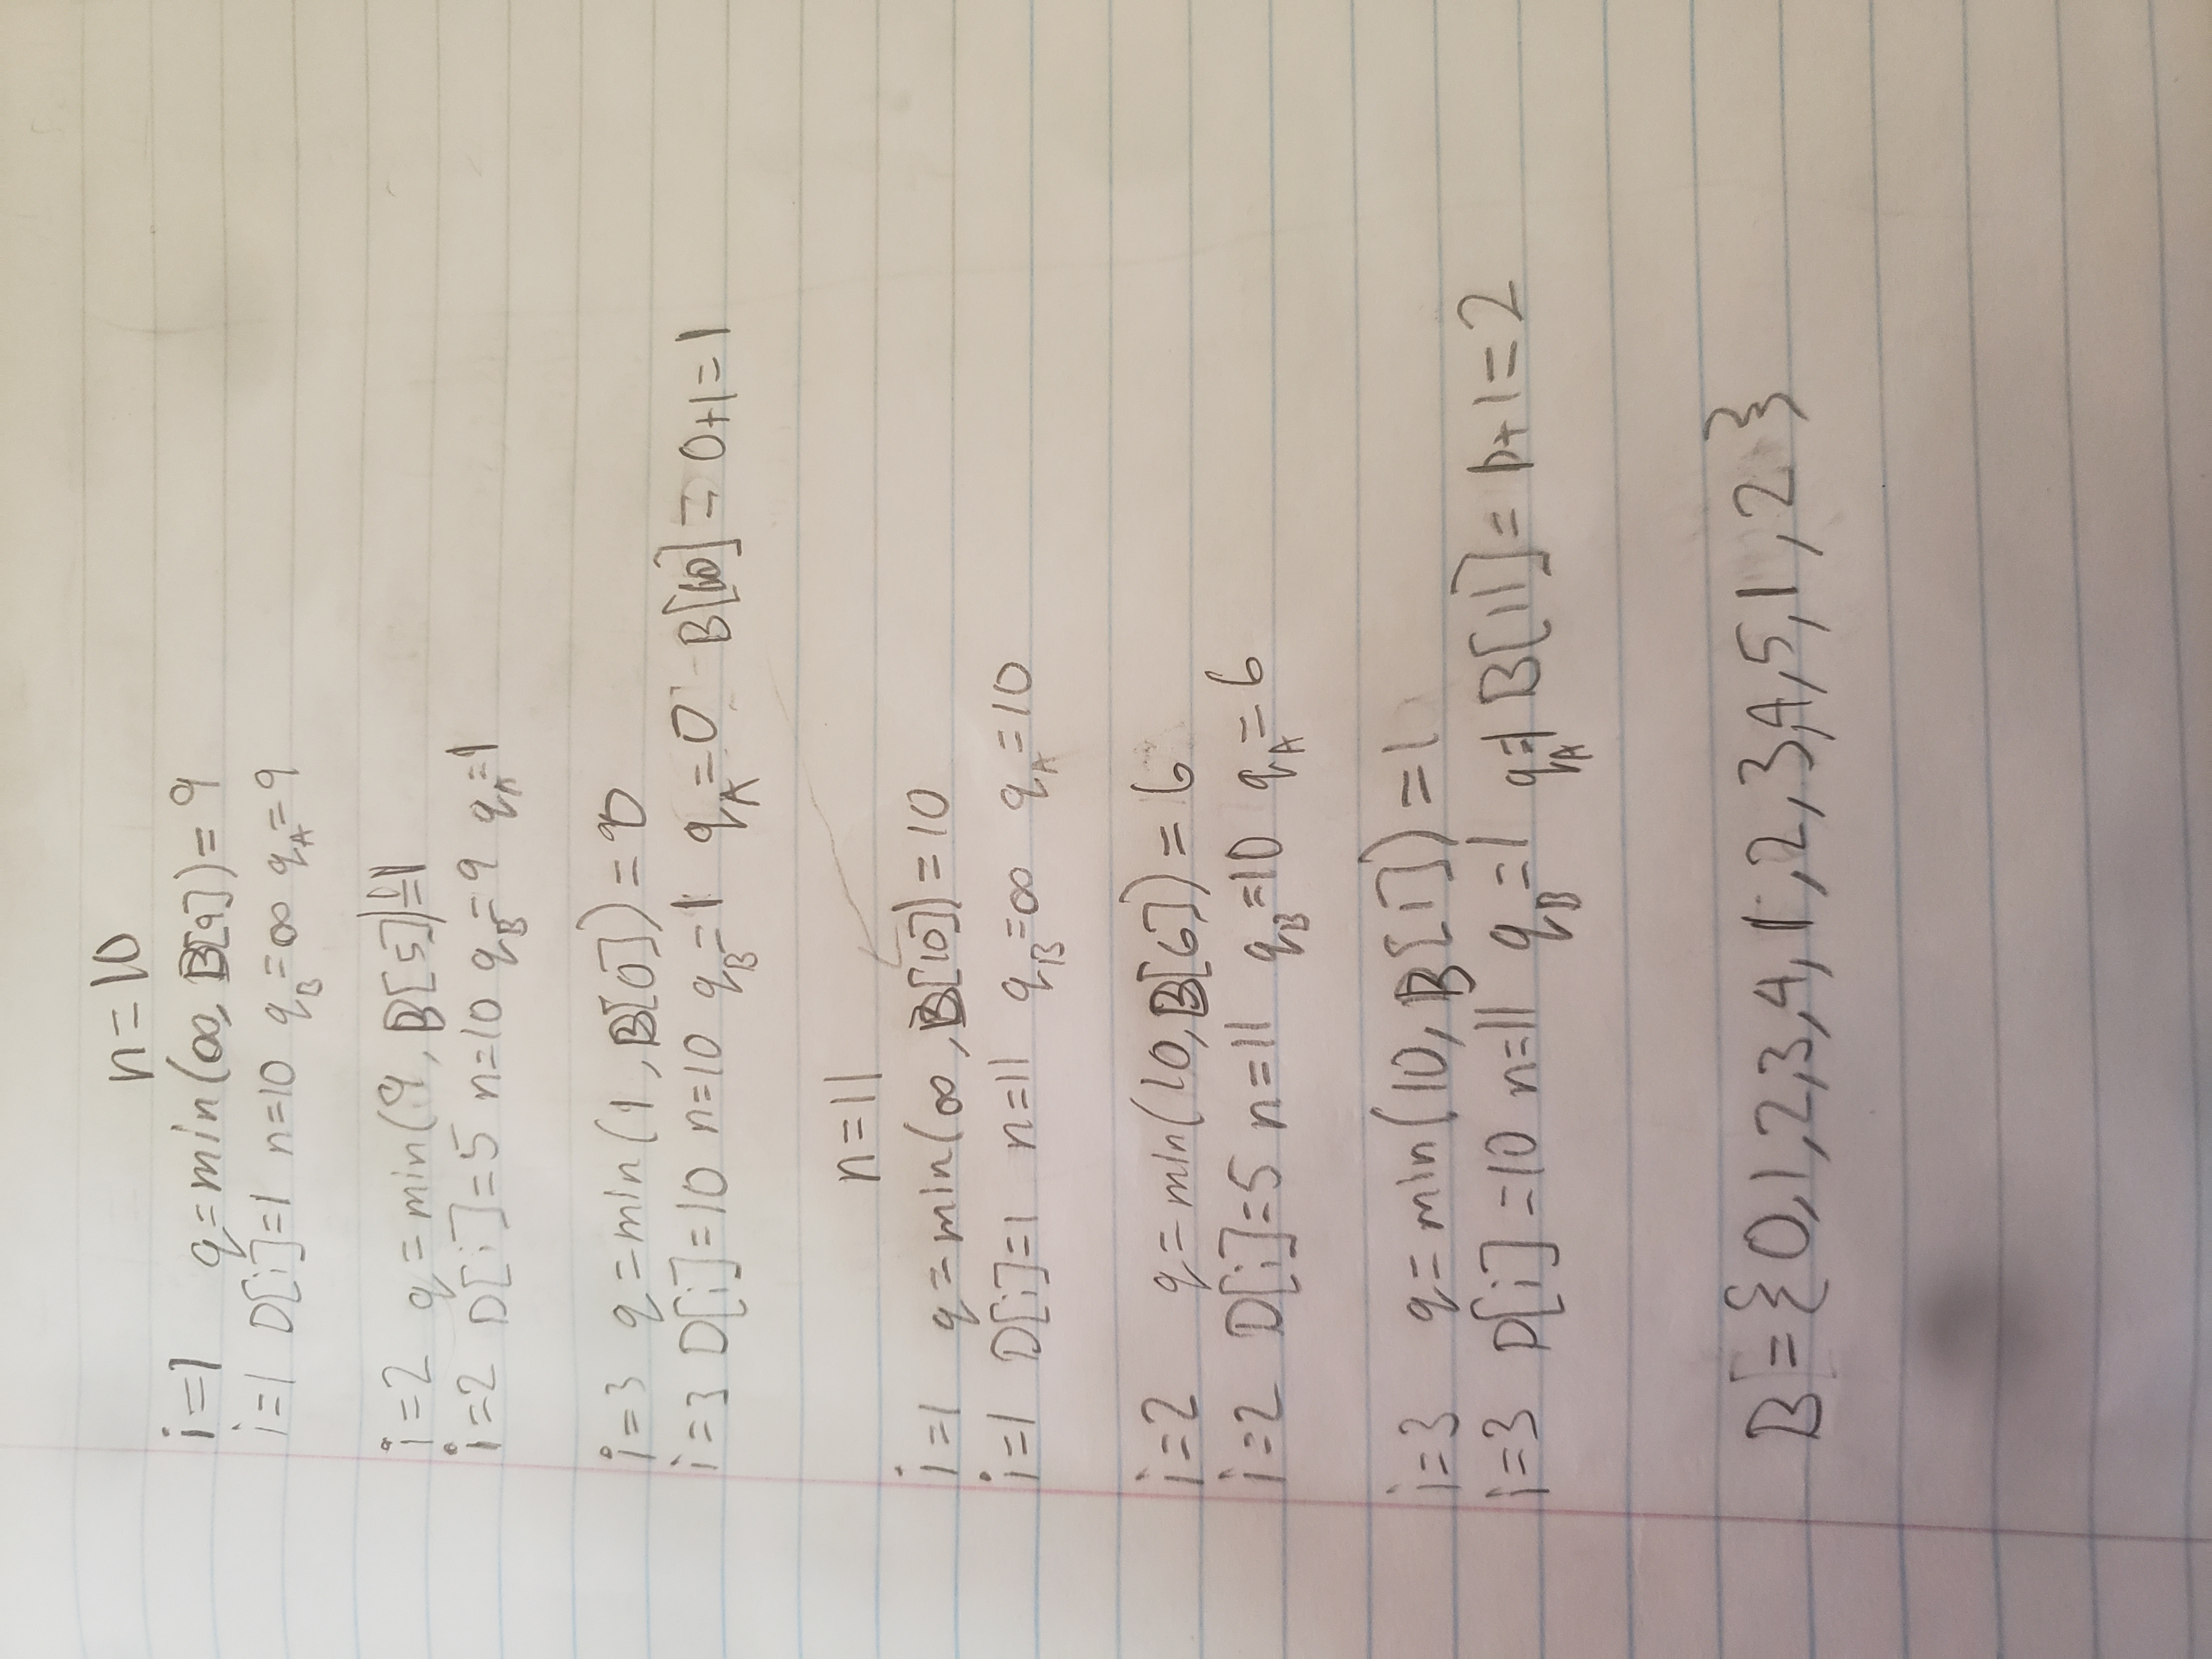 n=10
i=1 q=min(∞, B[9])=9
i=1 D[i]=1 n=10 q_B=∞ q_A=9
i=2 q=min(9, B[5])=1
i=2 D[i]=5 n=10 q_B=9 q_A=1
i=3 q=min(1, B[0])=0
i=3 D[i]=10 n=10 q_B=1 q_A=0 B[10]=0+1=1
n=11
i=1 q=min(∞, B[10])=10
i=1 D[i]=1 n=11 q_B=∞ q_A=10
i=2 q=min(10, B[6])=6
i=2 D[i]=5 n=11 q_B=10 q_A=6
i=3 q=min(10, B[1])=1
i=3 D[i]=10 n=11 q_B=1 q_A=1 B[11]=1+1=2
B={0,1,2,3,4,1,2,3,4,5,1,2}